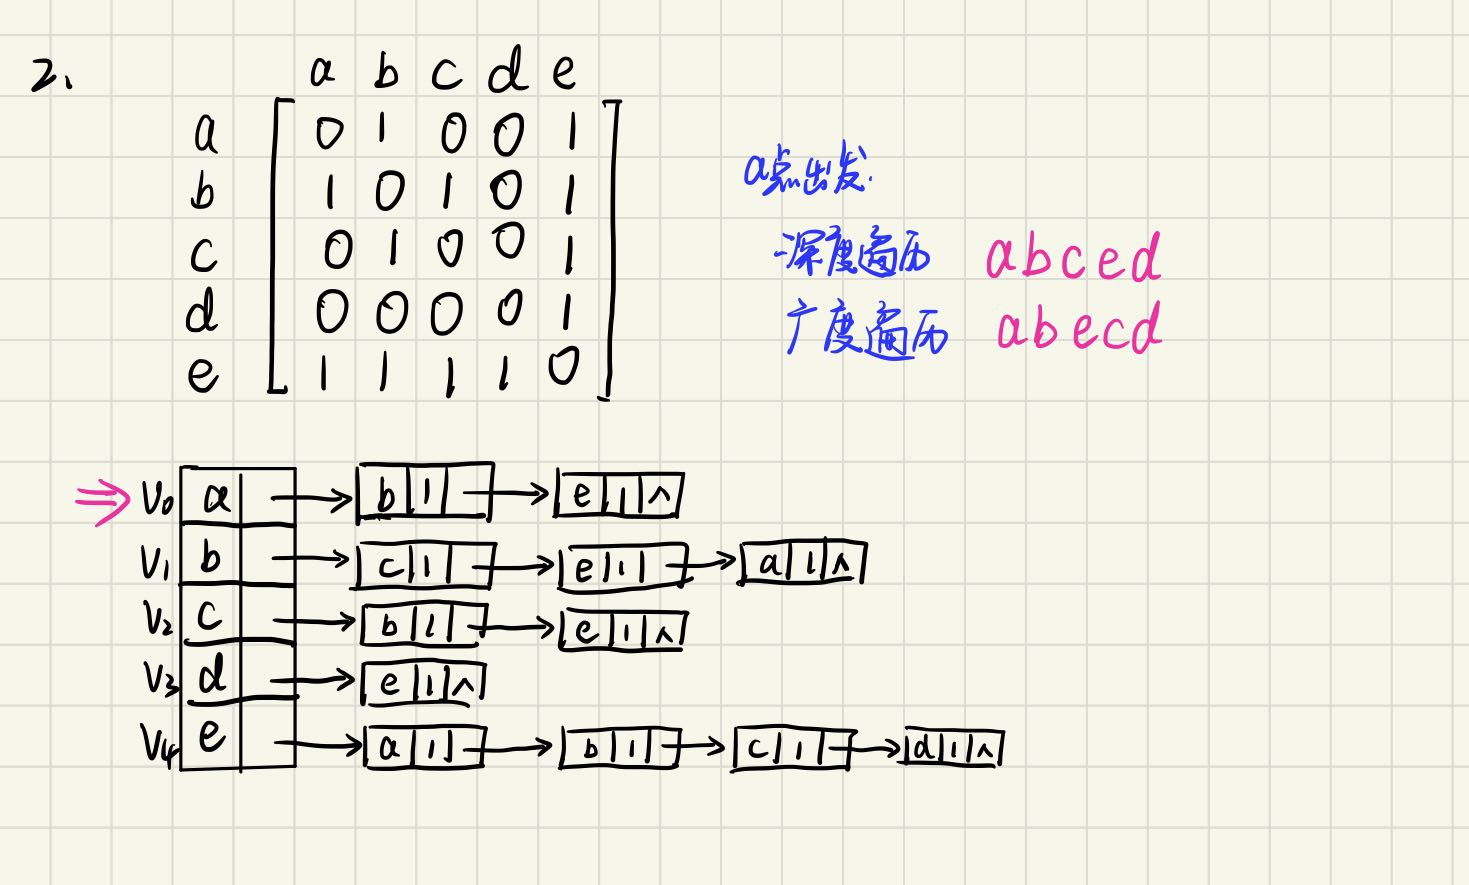 2.
a b c d e
a 0 1 0 0 1
b 1 0 1 0 1
c 0 1 0 0 1
d 0 0 0 0 1
e 1 1 1 1 0
a点出发.
深度遍历 abced
广度遍历 abecd
⇒ V0 a → b 1 → e 1 ^
V1 b → c 1 → e 1 → a 1 ^
V2 c → b 1 → e 1 ^
V3 d → e 1 ^
V4 e → a 1 → b 1 → c 1 → d 1 ^